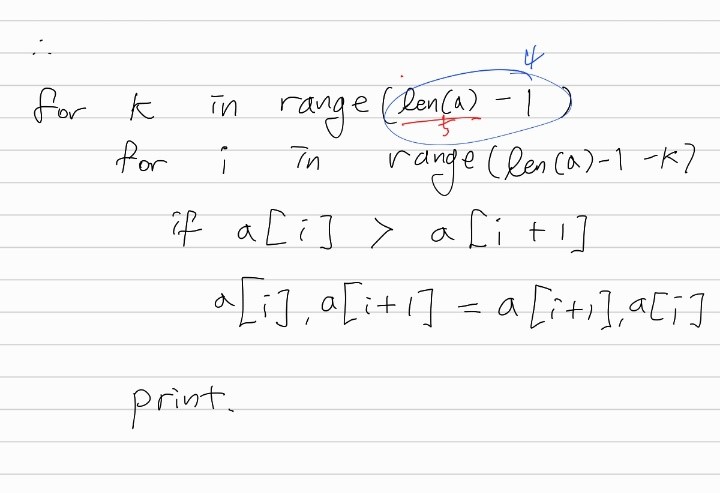 ∴
4
for k in range(len(a) - 1)
5
for i in range(len(a)-1-k)
if a[i] > a[i+1]
a[i], a[i+1] = a[i+1], a[i]
print.